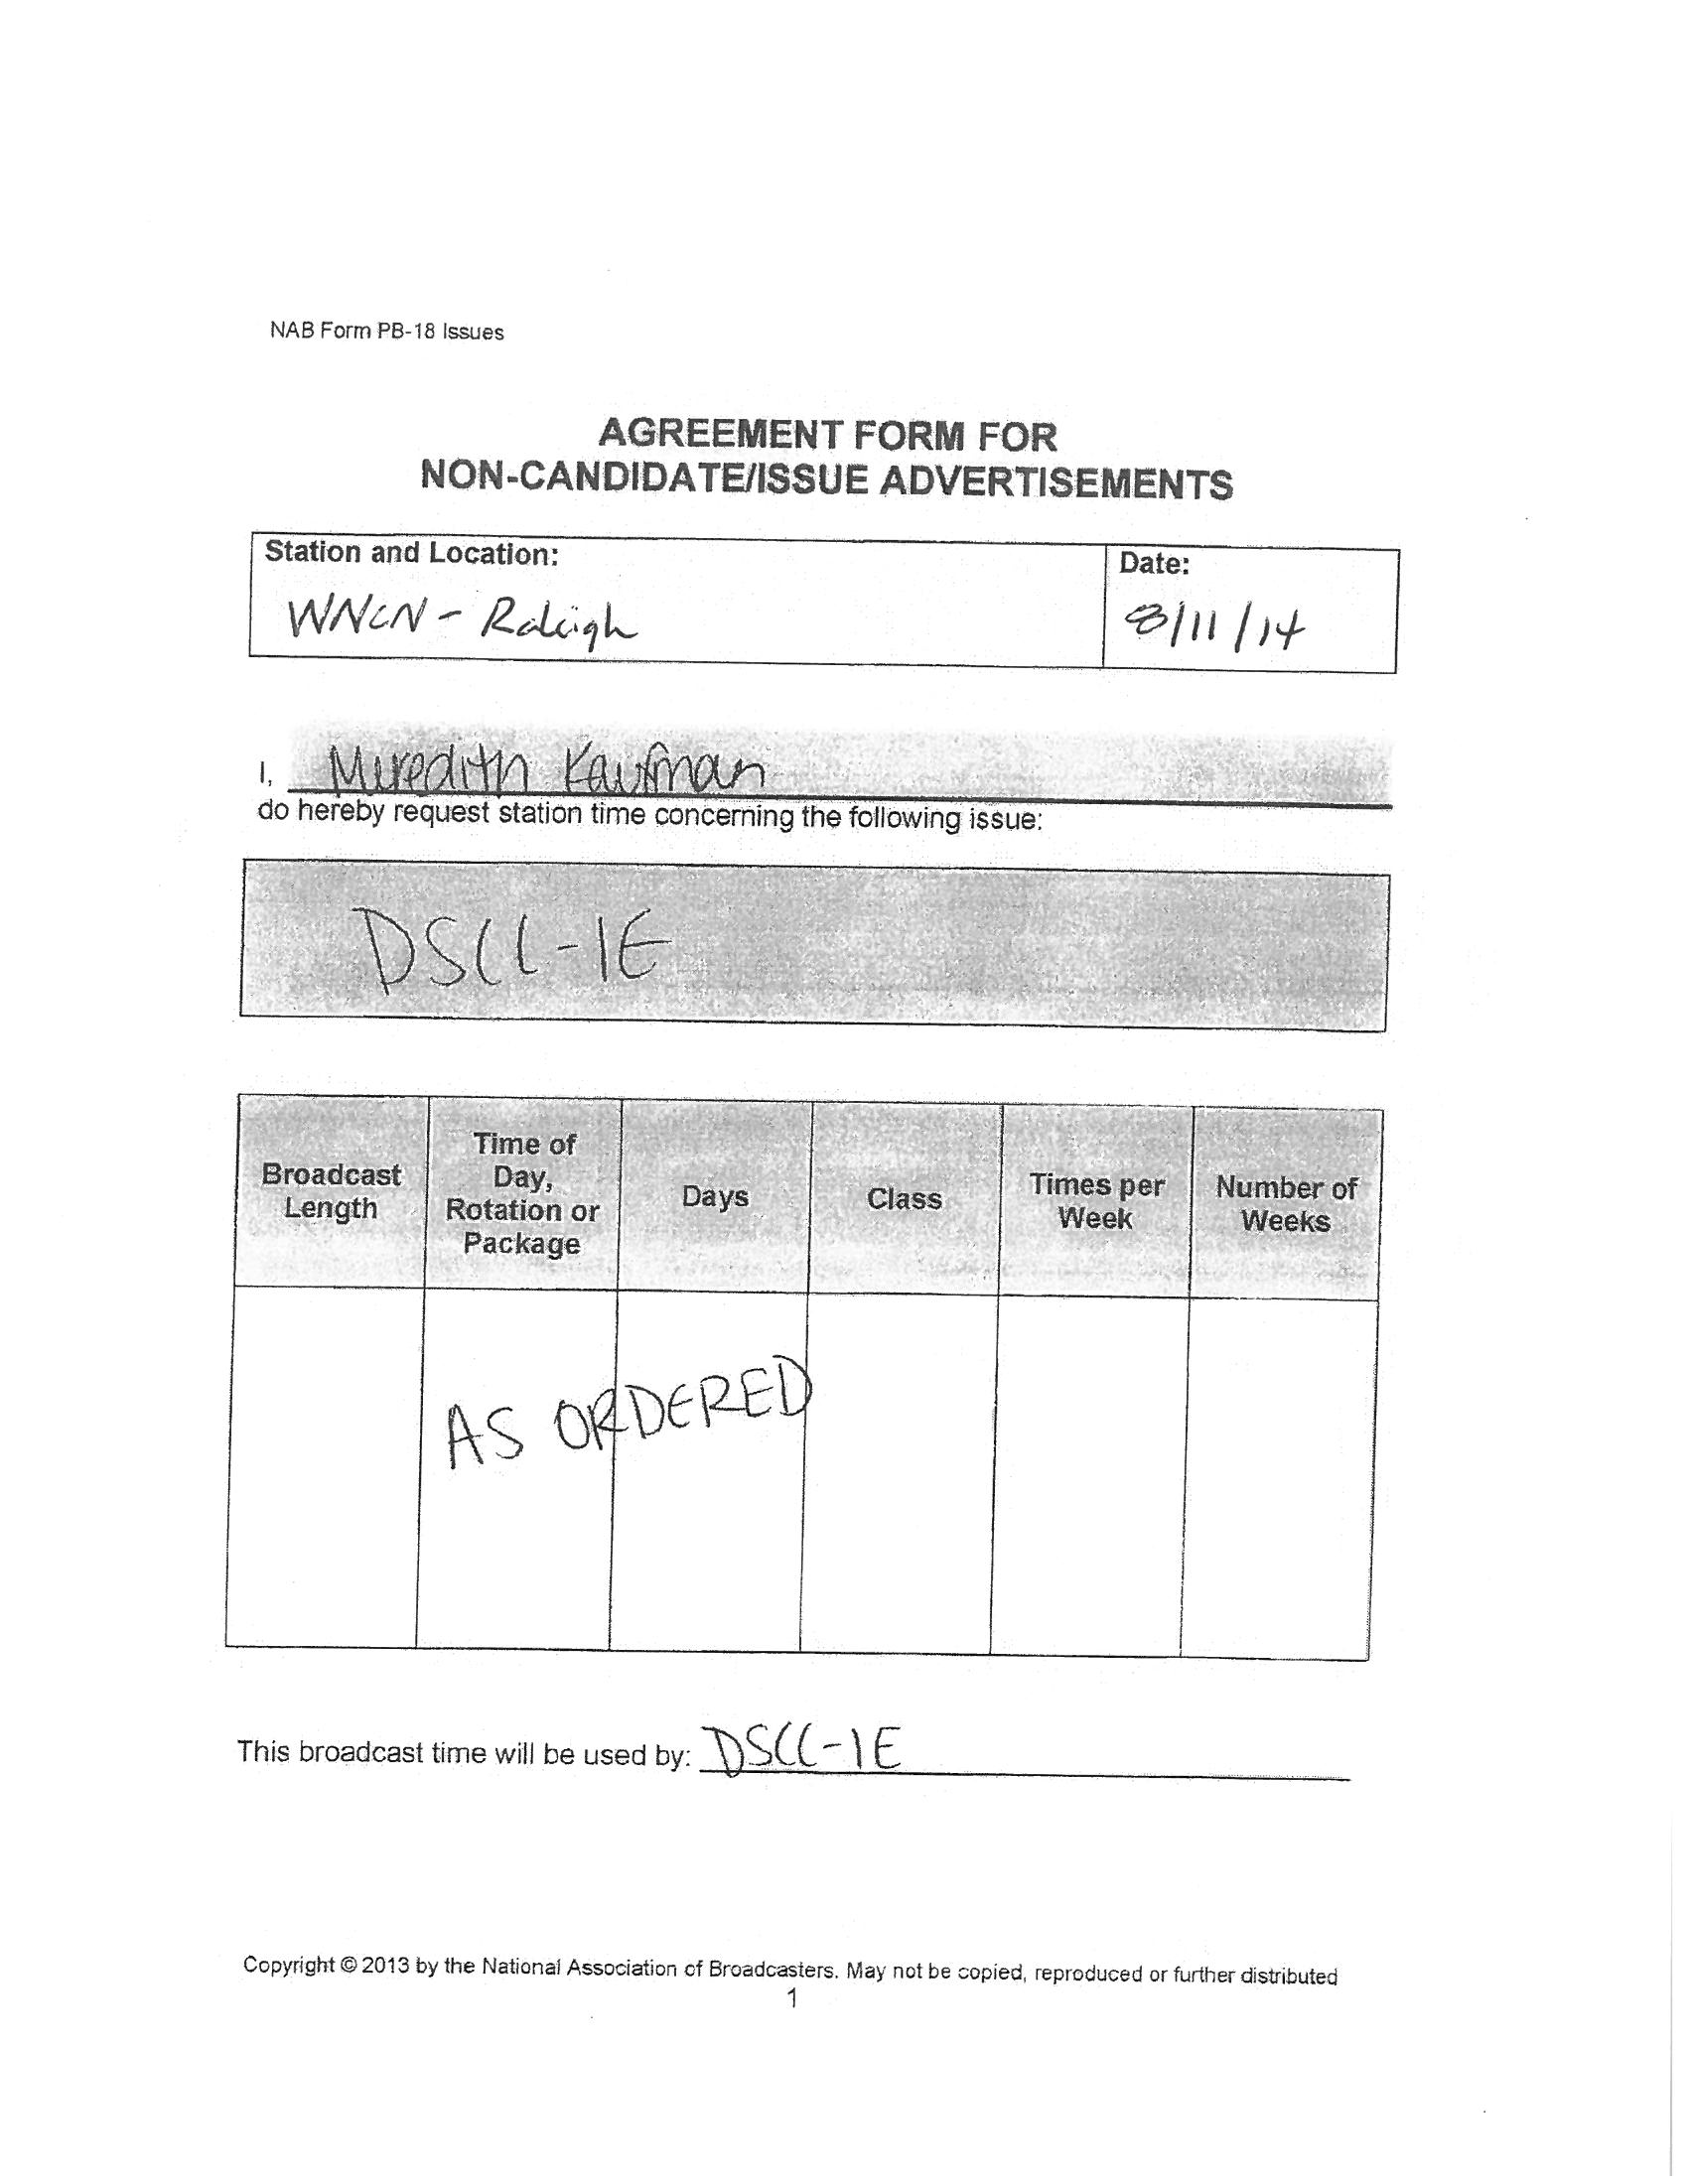 NAB Form PB-18 Issues
AGREEMENT FORM FOR
NON-CANDIDATE/ISSUE ADVERTISEMENTS
Station and Location:
Date:
WNCN - Raleigh
8/11/14
I, Meredith Kaufman
do hereby request station time concerning the following issue:
DSCC-IE
Broadcast
Length
Time of
Day,
Rotation or
Package
Days
Class
Times per
Week
Number of
Weeks
AS ORDERED
This broadcast time will be used by: DSCC-IE
Copyright © 2013 by the National Association of Broadcasters. May not be copied, reproduced or further distributed
1